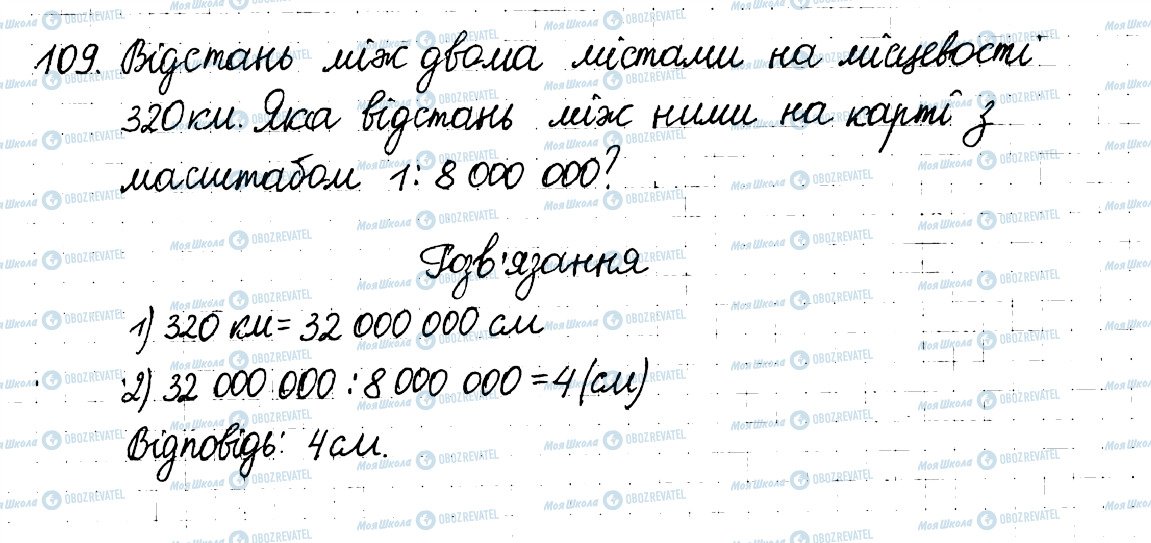 109. Відстань між двома містами на місцевості
320 км. Яка відстань між ними на карті з
масштабом 1 : 8 000 000?
Розв'язання
1) 320 км = 32 000 000 см
2) 32 000 000 : 8 000 000 = 4 (см)
Відповідь: 4 см.